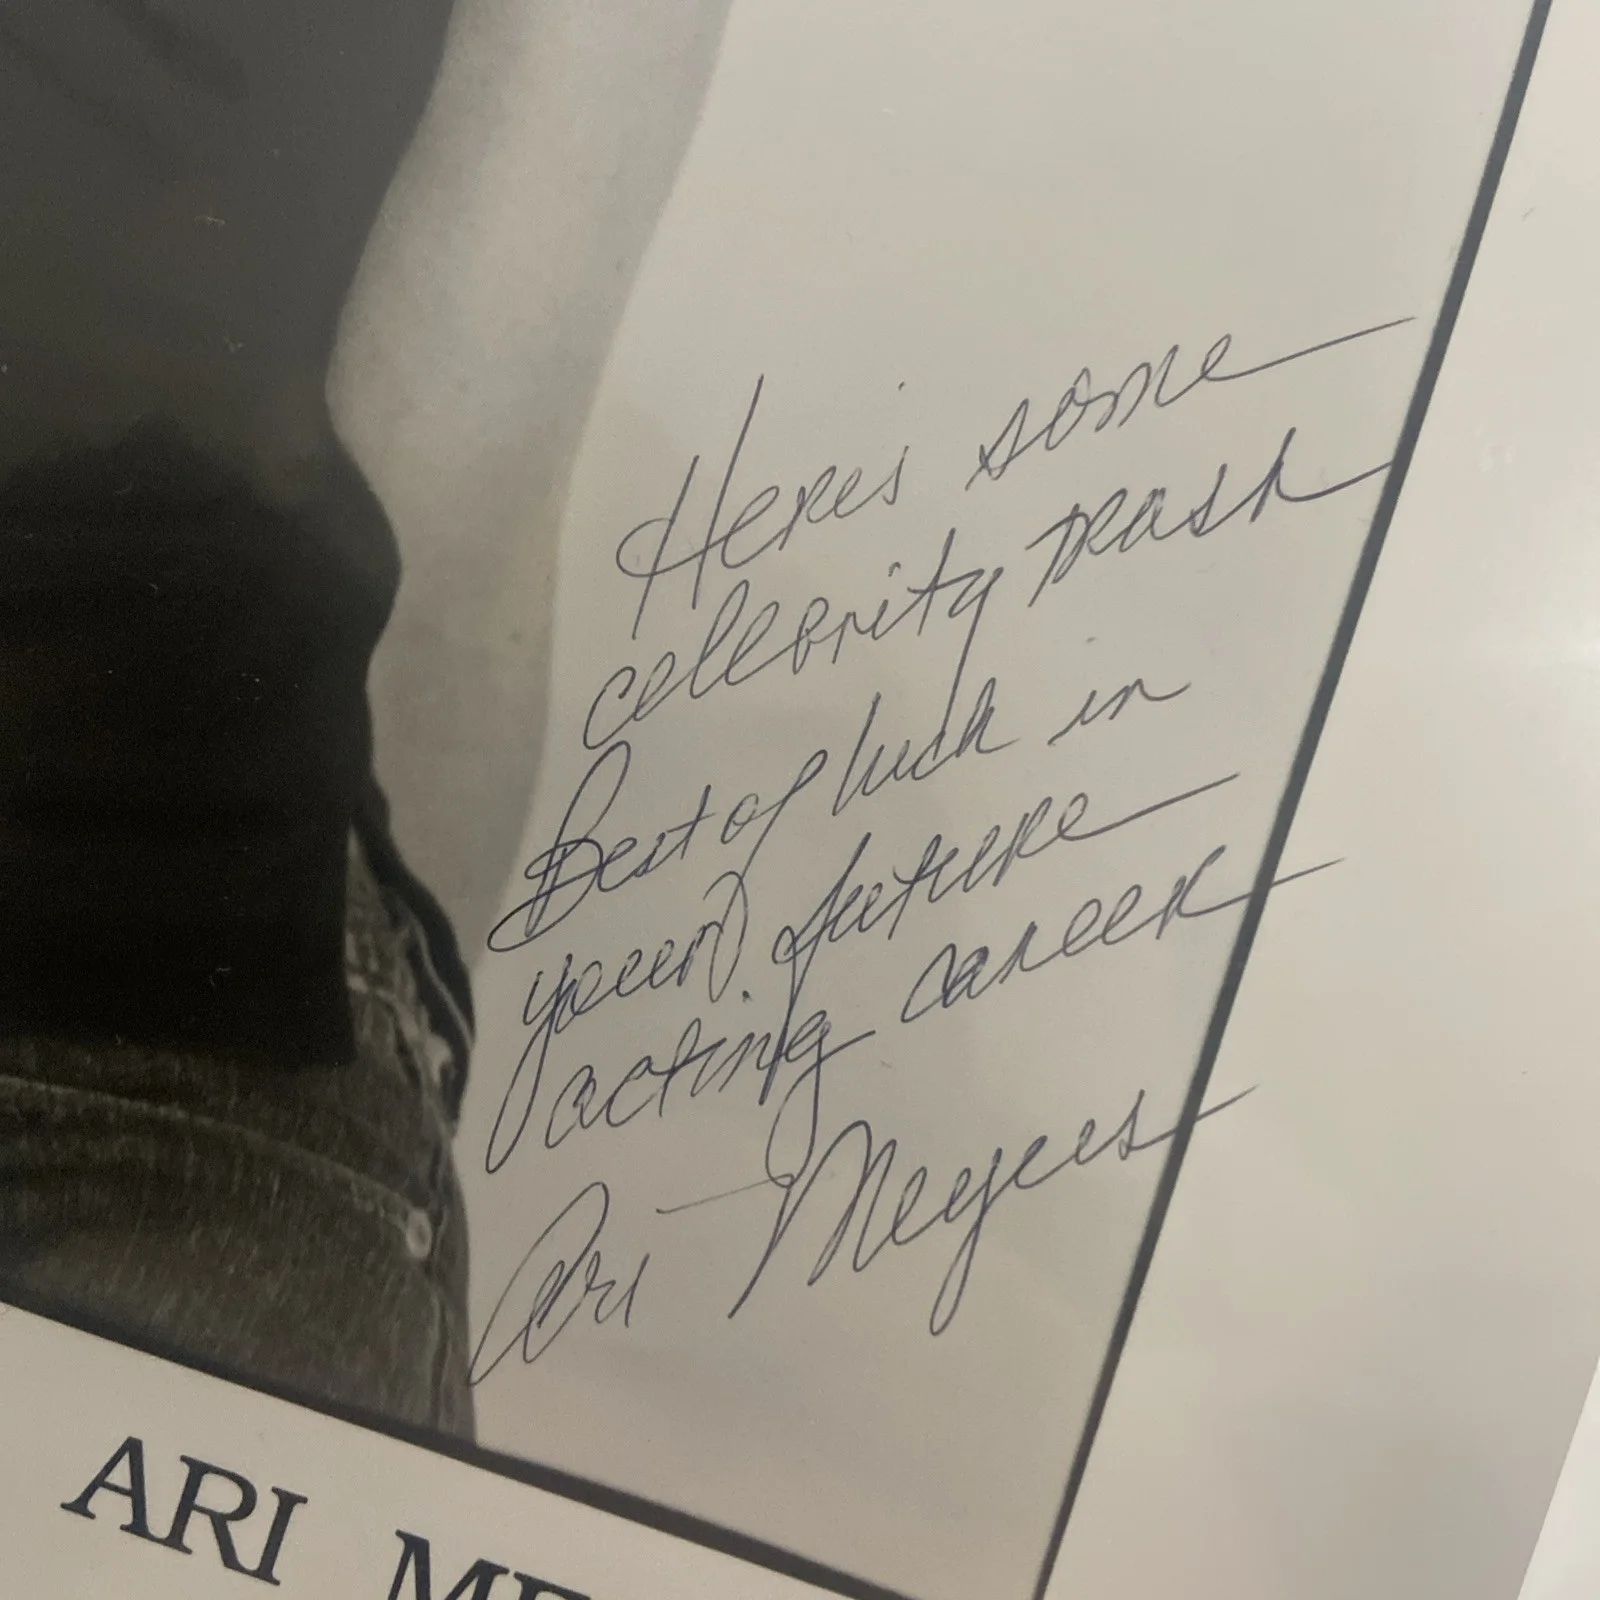 Here's some
celebrity trash
Best of luck in
your future
acting career
Ari Meyers
ARI ME